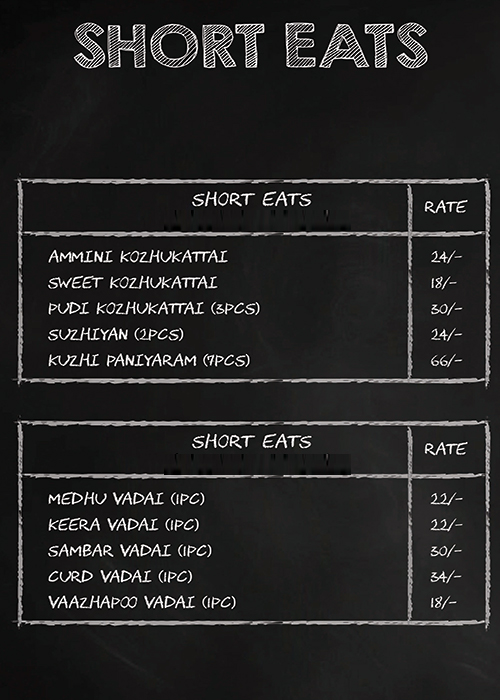 SHORT EATS
SHORT EATS RATE
AMMINI KOZHUKATTAI 24/-
SWEET KOZHUKATTAI 18/-
PUDI KOZHUKATTAI (3PCS) 30/-
SUZHIYAN (2PCS) 24/-
KUZHI PANIYARAM (7PCS) 66/-
SHORT EATS RATE
MEDHU VADAI (1PC) 22/-
KEERA VADAI (1PC) 22/-
SAMBAR VADAI (1PC) 30/-
CURD VADAI (1PC) 34/-
VAAZHAPOO VADAI (1PC) 18/-